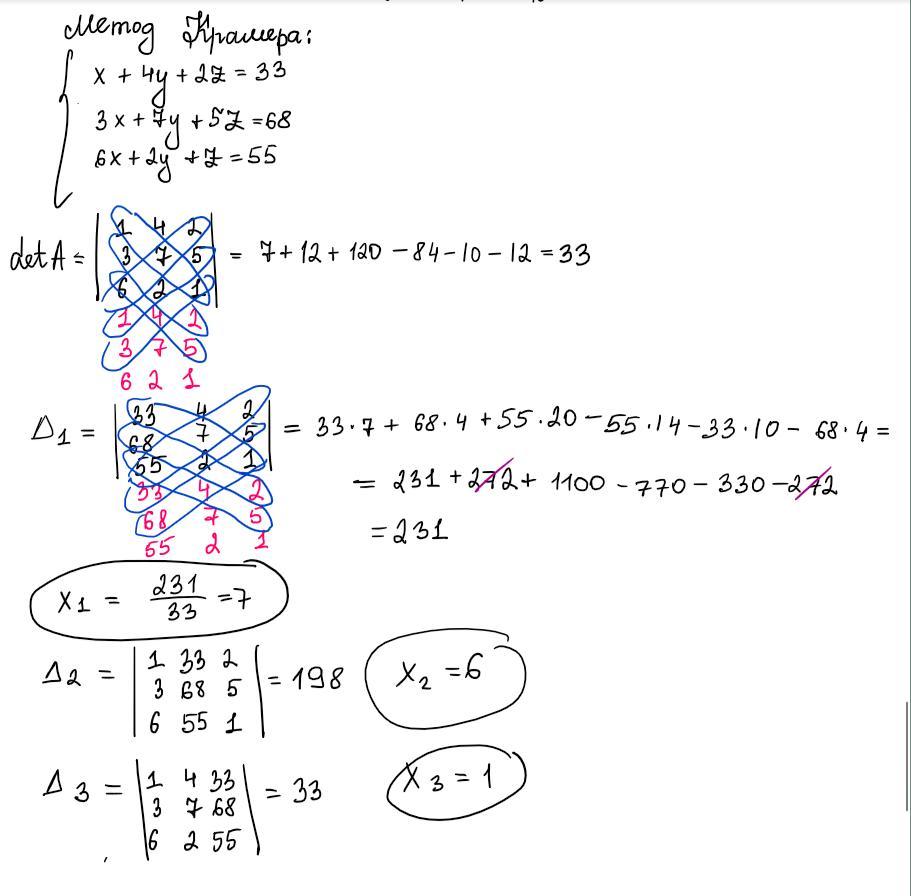 Метод Крамера:
x + 4y + 2z = 33
3x + 7y + 5z = 68
6x + 2y + z = 55
det A =
1 4 2
3 7 5
6 2 1
= 7 + 12 + 120 - 84 - 10 - 12 = 33
1 4 2
3 7 5
6 2 1
Δ1 =
33 4 2
68 7 5
55 2 1
= 33·7 + 68·4 + 55·20 - 55·14 - 33·10 - 68·4 =
33 4 2
68 7 5
55 2 1
= 231 + 272 + 1100 - 770 - 330 - 272
= 231
x1 = 231/33 = 7
Δ2 =
1 33 2
3 68 5
6 55 1
= 198
x2 = 6
Δ3 =
1 4 33
3 7 68
6 2 55
= 33
x3 = 1